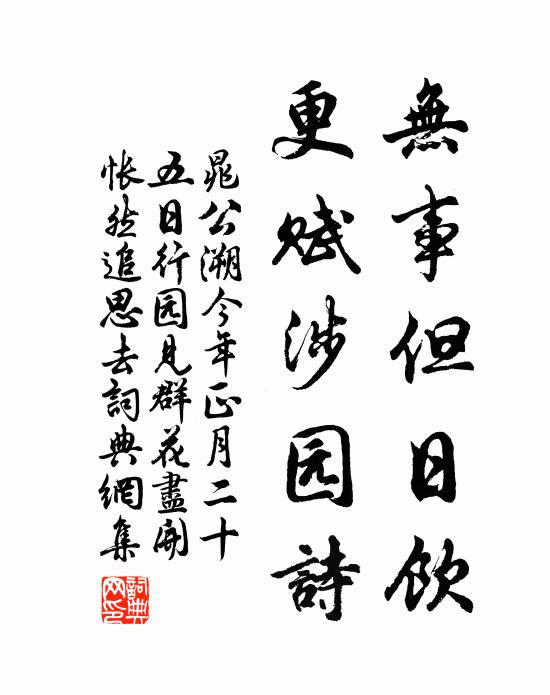 無事但日飲
更赋涉园詩
晁公溯今年正月二十
五日行园見群花盡開
怅然追思去詞典網集
詞典
网印